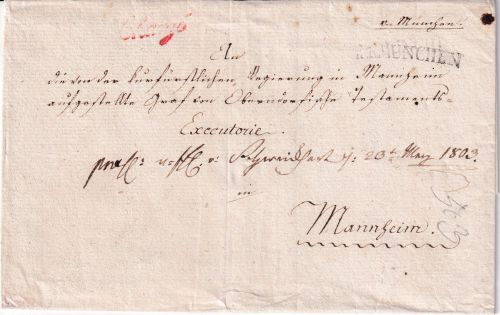 Chargé
v. München.
R.MÜNCHEN
An
die von der kurfürstlichen Regierung in Mannheim
aufgestellte Graf von Oberndorfische Testaments-
Executorie.
23t May 1803.
in
Mannheim.